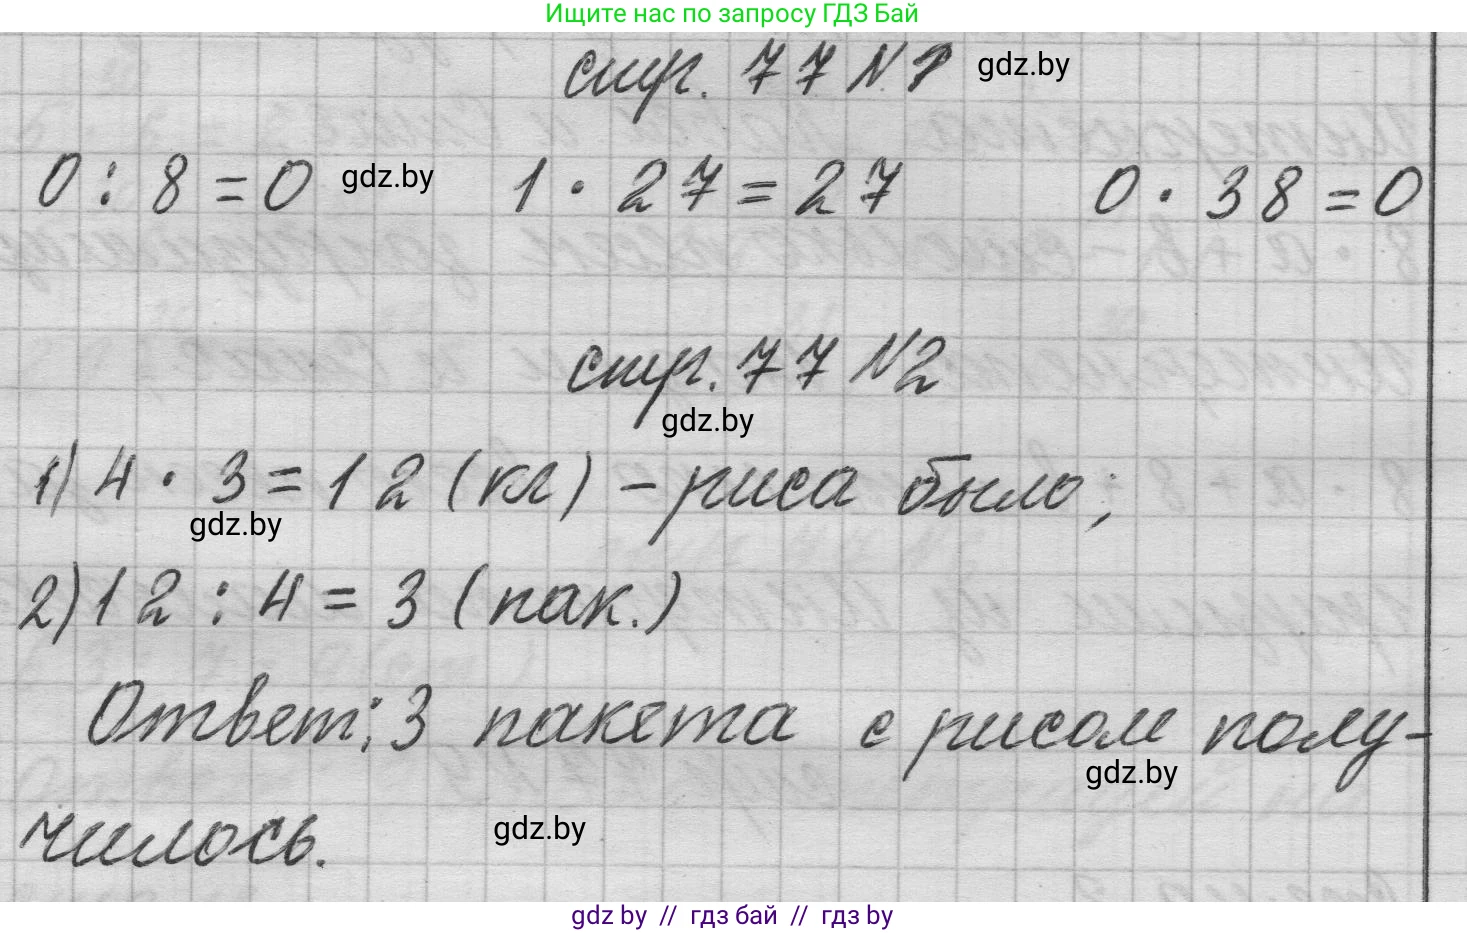 Ищите нас по запросу ГДЗ Бай
стр. 77 N 1 gdz.by
0 : 8 = 0 gdz.by 1 · 27 = 27 0 · 38 = 0
стр. 77 N2
gdz.by
1) 4 · 3 = 12 (кг) - риса было;
gdz.by
2) 12 : 4 = 3 (пак.)
Ответ: 3 пакета с рисом полу-
gdz.by
чилось. gdz.by
gdz by // гдз бай // гдз by